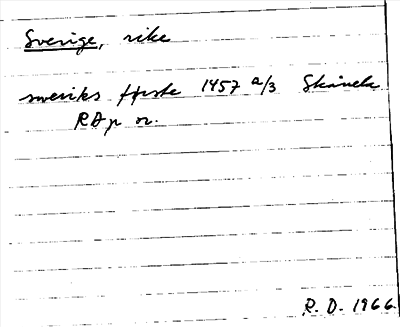 Sverige, rike
sweriksførste 1457 2/3 Skånela
RAp or.
R. D. 1966.